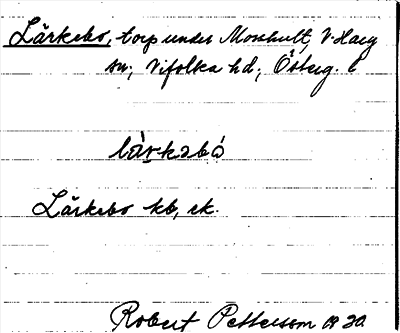 Lärkebo, torp under Mosshult, V. Harg
sn, Vifolka hd, Österg. l
lä̀rkabó
Lärkebo kb, ek.
Robert Pettersson 1920